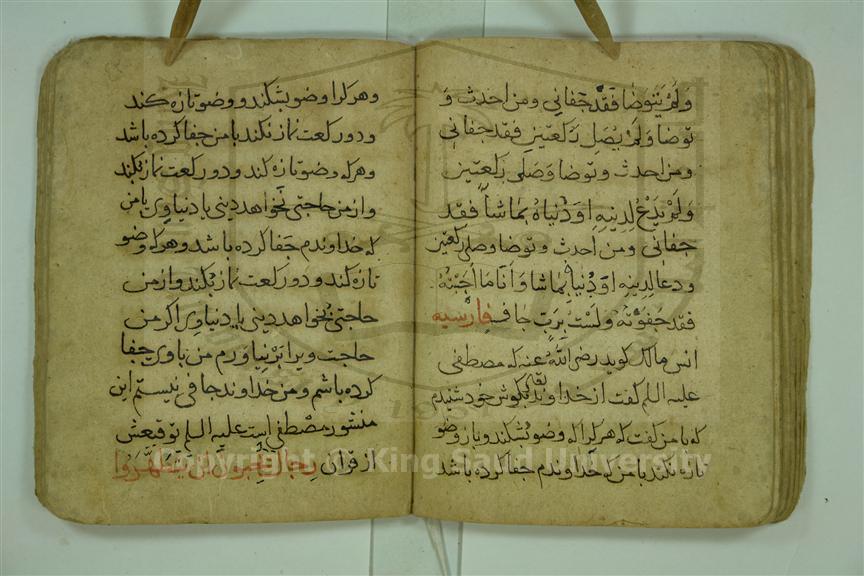 وَلَمْ يَتَوَضَّا فَقَدْ جَفَانِي وَمَن احدث وَ
توضا وَلَمْ يُصَلِّ رَكْعَتَيْنِ فَقَد جفاني
ومن احدث وتوضا وَصَلّى ركعتين
وَلَمْ يَدْعُ لِدِينِهِ اوْ دُنْيَاهُ بِمَا شَاءَ فَقَد
جفاني ومن احدث وتوضا وصلى ركعتين
ودعا لدينه اوْ دُنْيَاهُ بِمَا شا وَاَنَا مَا اَجَبْتُهُ
فقد جَفَوْتُهُ وَلَسْتُ بِرَبٍّ جافٍ فارسيه
انس مالك كويد رضى اللهُ عنه كه مصطفى
عليه السلم كفت از خداوند تعالى بكوش خود شنيدم
كه با من كفت كه هر كرا كه وضو بشكند وباز وضو
تازه نكند با من كه خداوندم جفا كرده باشد
وهر كرا وضو بشكند و وضو تازه كند
و دو ركعت نماز نكند با من جفا كرده باشد
وهر كه وضو تازه كند و دو ركعت نماز بكند
واز من حاجتى نخواهد دينى يا دنياوى با من
كه خداوندم جفا كرده باشد وهر كه وضو
تازه كند و دو ركعت نماز بكند واز من
حاجتى بخواهد دينى يا دنياوى اكر من
حاجت ويرا بر نياورم من با وى جفا
كرده باشم ومن خداوند جافى نيستم اين
منشور مصطفى است عليه السلم توقيعش
از قرآن رِجَالٌ يُحِبُّونَ اَنْ يَتَطَهَّرُوا
Copyright © King Saud University